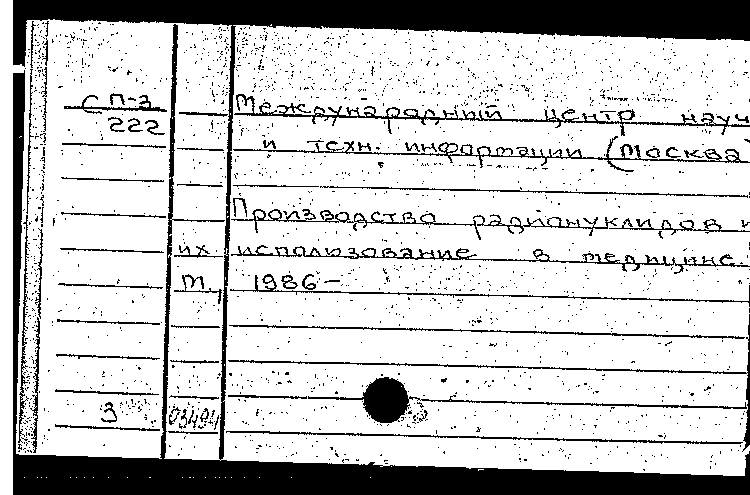 С П-з
222
Международный центр науч
и техн. информации (Москва)
Производство радионуклидов и
их использование в медицине.
М, 1986-
3 03494